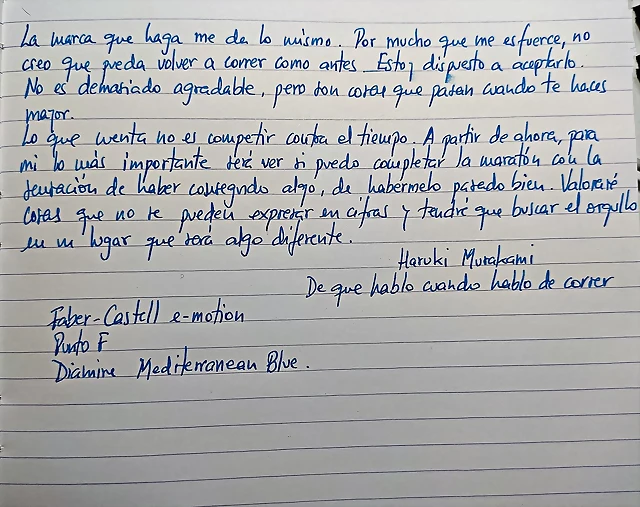 La marca que haga me da lo mismo. Por mucho que me esfuerce, no
creo que pueda volver a correr como antes. Estoy dispuesto a aceptarlo.
No es demasiado agradable, pero son cosas que pasan cuando te haces
mayor.
Lo que cuenta no es competir contra el tiempo. A partir de ahora, para
mi lo más importante será ver si puedo completar la maratón con la
sensación de haber conseguido algo, de habermelo pasado bien. Valoraré
cosas que no se pueden expresar en cifras y tendré que buscar el orgullo
en un lugar que será algo diferente.
Haruki Murakami
De que hablo cuando hablo de correr
Faber-Castell e-motion
Punto F
Diamine Mediterranean Blue.